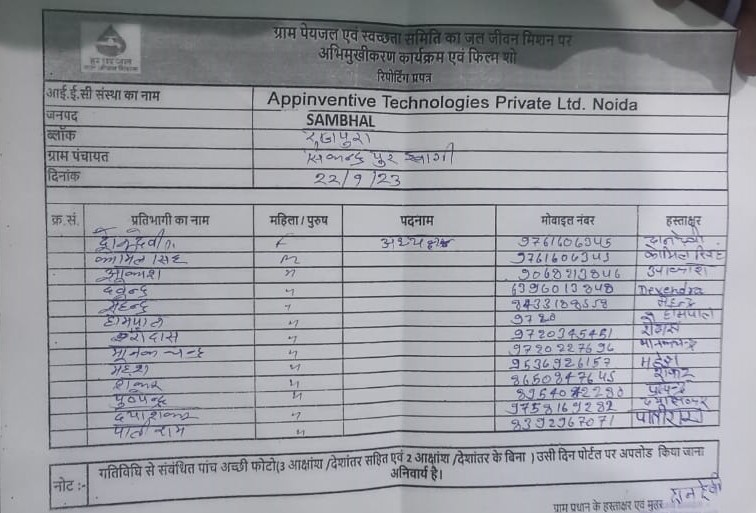 ग्राम पेयजल एवं स्वच्छता समिति का जल जीवन मिशन पर
अभिमुखीकरण कार्यक्रम एवं फिल्म शो
रिपोर्टिंग प्रपत्र
आई.ई.सी संस्था का नाम Appinventive Technologies Private Ltd. Noida
जनपद SAMBHAL
ब्लॉक रजपुरा
ग्राम पंचायत सिकन्द्रपुर
दिनांक 22/9/23
क्र.सं. प्रतिभागी का नाम महिला / पुरुष पदनाम मोबाइल नंबर हस्ताक्षर
F अध्यक्ष 9761606345
कामिल सिंह m 9761606345 कामिल सिंह
आकाश m 9068213846 आकाश
देवेन्द्र m 6396013848 Devendra
महेन्द्र m 8433188558 महेन्द्र
होमपाल m 9720 होमपाल
m 9720345451
मानक चन्द्र m 9720227696 मानकचन्द्र
महेश m 9536926157 महेश
शंकर m 8650847645 शंकर
पुष्पेन्द्र m 8954042280
दयाशंकर m 9758169282 दयाशंकर
पातीराम m 8392967071 पातीराम
नोट :- गतिविधि से संबंधित पांच अच्छी फोटो(3 आक्षांश /देशांतर सहित एवं 2 आक्षांश /देशांतर के बिना ) उसी दिन पोर्टल पर अपलोड किया जाना
अनिवार्य है।
ग्राम प्रधान के हस्ताक्षर एवं मुहर